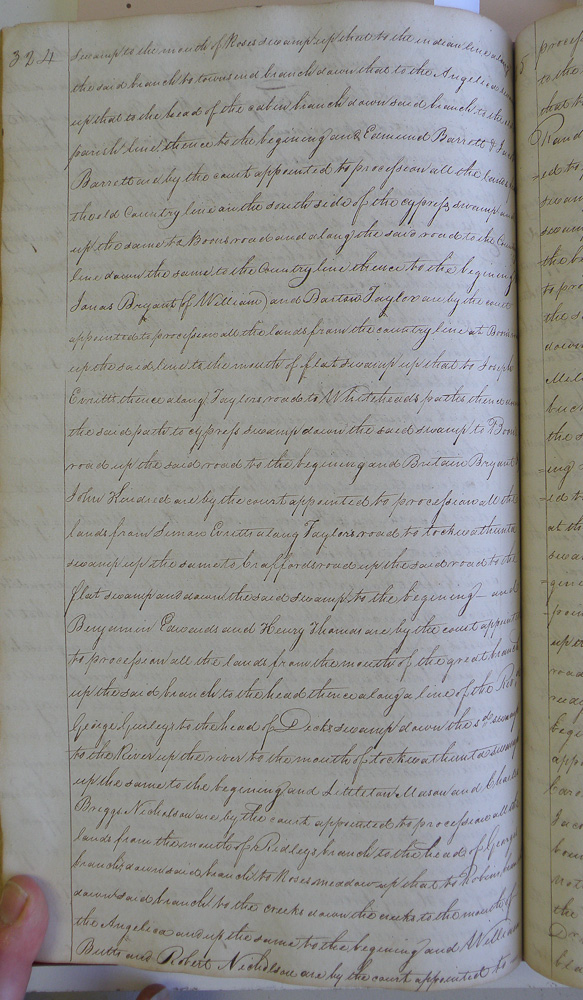 324
swamp to the mouth of Roses swamp up that to the indian line along
the said branch to townsend branch down that to the Angelica
up that to the head of the cabin branch down said branch to the
parish line thence to the begining and Edmund Barrett &
Barrett are by the court appointed to procession all the lands
the old Country line on the south side of the cypress swamp and
up the same to Boons road and along the said road to the
line down the same to the Country line thence to the begining
Jonas Bryant (of William) and Barton Taylor are by the court
appointed to procession all the lands from the country line at Boons
up the said line to the mouth of flat swamp up that to Joseph
Everitt thence along Taylors road to Whiteheads path thence down
the said path to cypress swamp down the said swamp to Boons
road up the said road to the begining and Britain Bryant
John Kindred are by the court appointed to procession all the
lands from Simon Everitt along Taylors road to
swamp up the same to Craffords road up the said road to the
flat swamp and down the said swamp to the begining - and
Benjamin Edwards and Henry Thomas are by the court appointed
to procession all the lands from the mouth of the great branch
up the said branch to the head thence along a line of the
George Gurleys to the head of Decks swamp down the sd. swamp
to the River up the river to the mouth of swamp
up the same to the begining and Littleton Mason and Charles
Briggs Nicholson are by the court appointed to procession all the
lands from the mouth of Ridleys branch to the head of Georges
branch down said branch to Roses meadow up that to
down said branch to the creeks down the creeks to the mouth of
the Angelica and up the same to the begining and William
Butts and Robert Nicholson are by the court appointed to